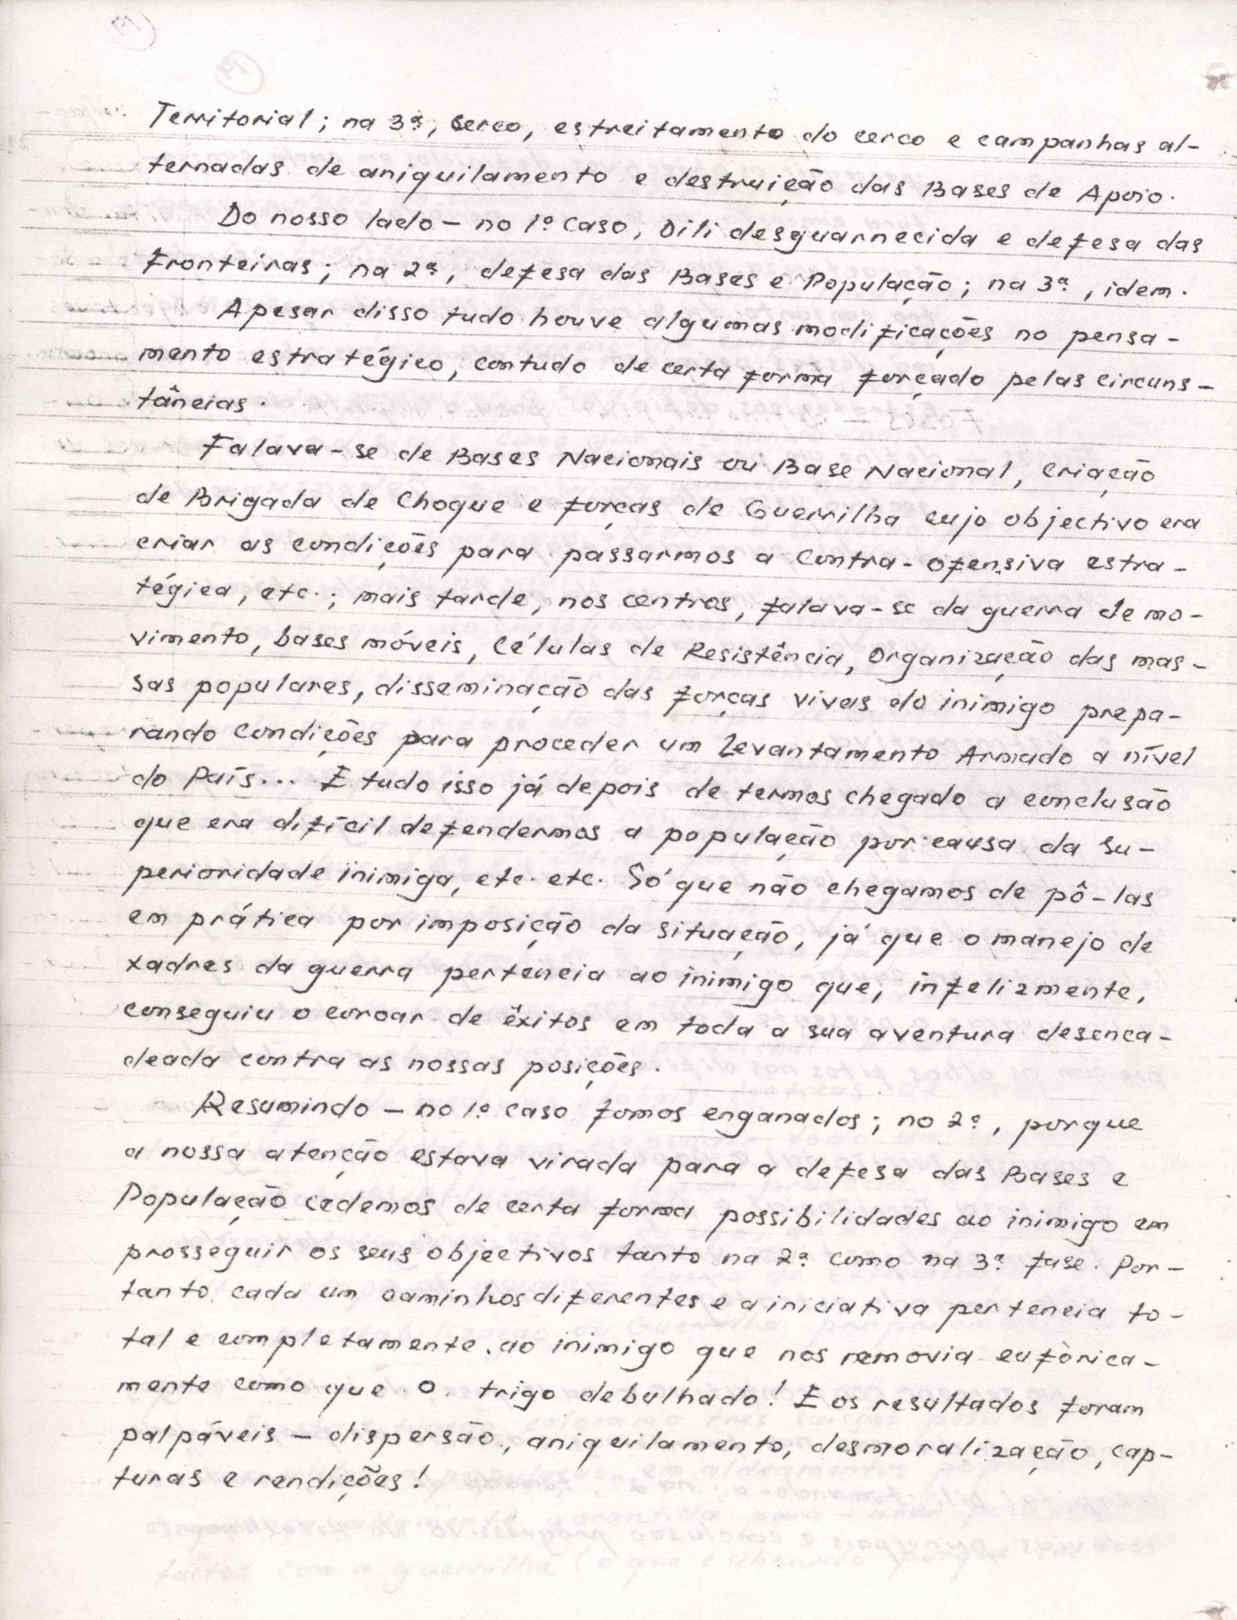 Territorial; na 3ª, cerco, estreitamento do cerco e campanhas al-
ternadas de aniquilamento e destruição das Bases de Apoio.
Do nosso lado – no 1º caso, Dili desguarnecida e defesa das
Fronteiras; na 2ª, defesa das Bases e População; na 3ª, idem.
Apesar disso tudo houve algumas modificações no pensa-
mento estratégico, contudo de certa forma forçado pelas circuns-
tâncias.
Falava-se de Bases Nacionais ou Base Nacional, criação
de Brigada de Choque e forças de Guerrilha cujo objectivo era
criar as condições para passarmos a Contra-ofensiva estra-
tégica, etc.; mais tarde, nos centros, falava-se da guerra de mo-
vimento, bases móveis, Células de Resistência, Organização das mas-
sas populares, disseminação das forças vivas do inimigo prepa-
rando condições para proceder um Levantamento Armado a nível
do País... E tudo isso já depois de termos chegado a conclusão
que era difícil defendermos a população por causa da su-
perioridade inimiga, etc. etc. Só que não chegamos de pô-las
em prática por imposição da situação, já que o manejo de
xadres da guerra pertencia ao inimigo que, infelizmente,
conseguiu o coroar de êxitos em toda a sua aventura desenca-
deada contra as nossas posições.
Resumindo – no 1º caso fomos enganados; no 2º, porque
a nossa atenção estava virada para a defesa das Bases e
População cedemos de certa forma possibilidades ao inimigo em
prosseguir os seus objectivos tanto na 2ª como na 3ª fase. Por-
tanto cada um caminhos diferentes e a iniciativa pertencia to-
tal e completamente ao inimigo que nos removia eufòrica-
mente como que o trigo debulhado! E os resultados foram
palpáveis – dispersão, aniquilamento, desmoralização, cap-
turas e rendições!